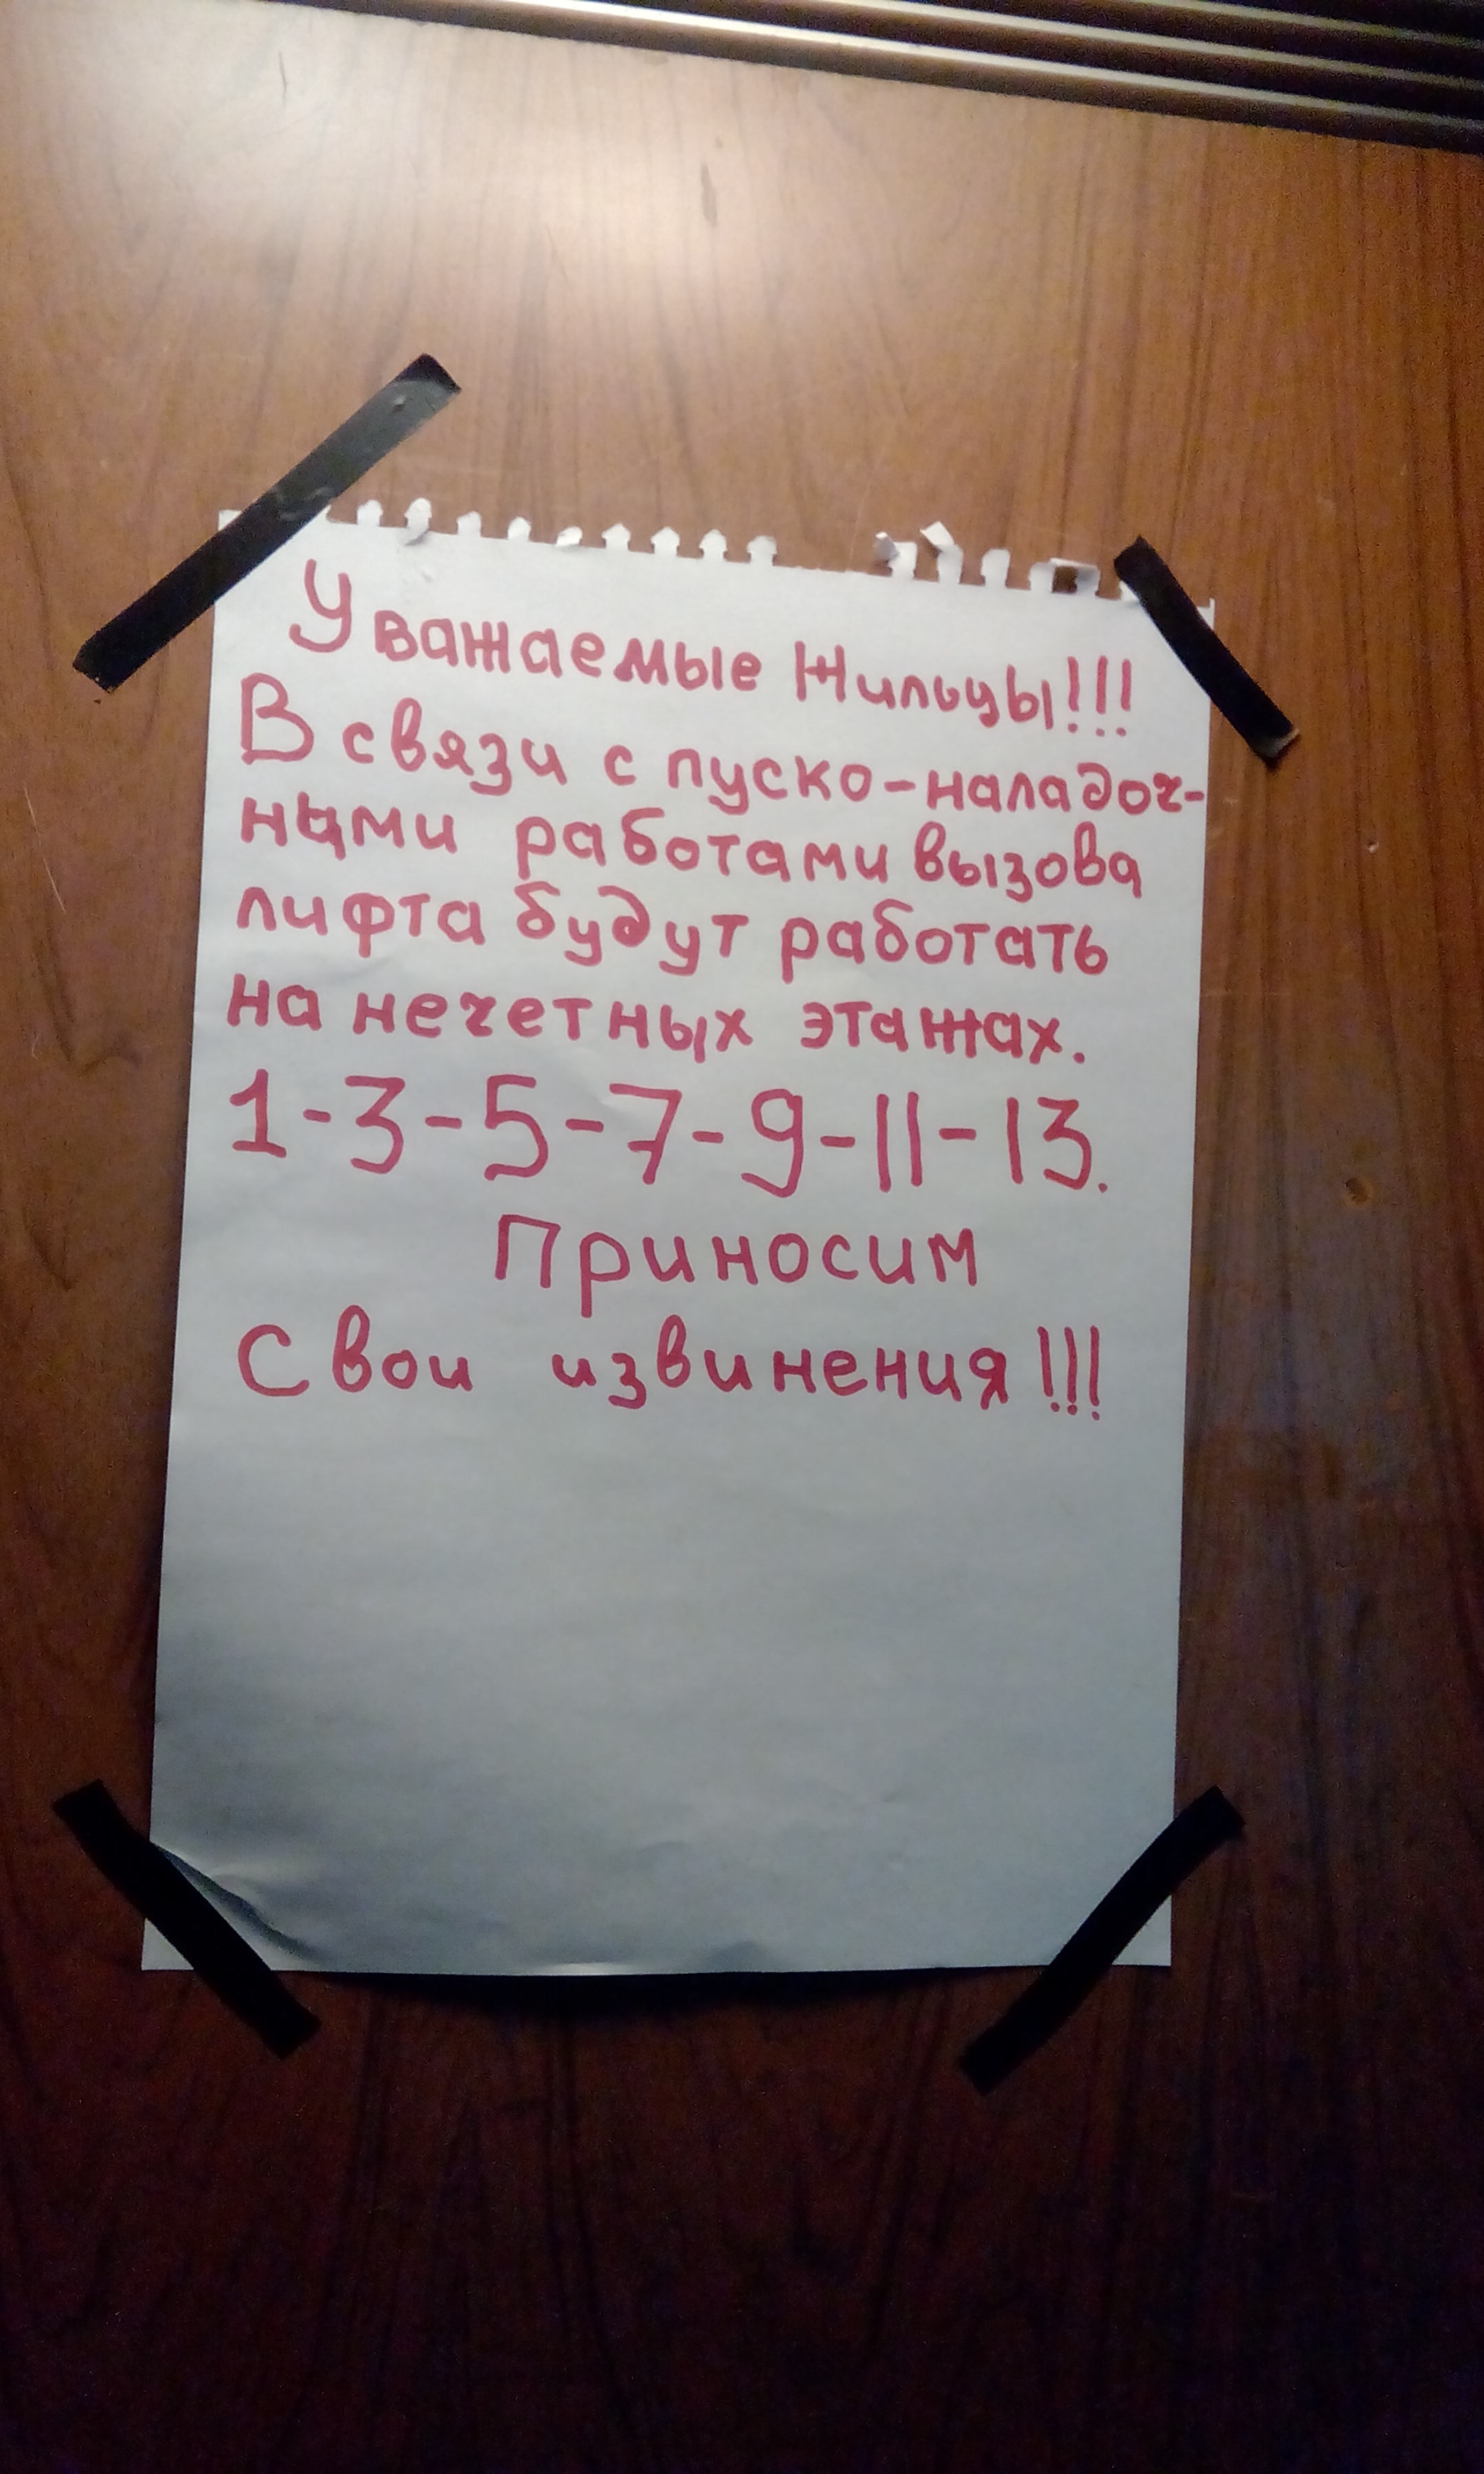 Уважаемые Жильцы!!!
В связи с пуско-наладоч-
ными работами вызова
лифта будут работать
на нечетных этажах.
1-3-5-7-9-11-13.
Приносим
Свои извинения!!!